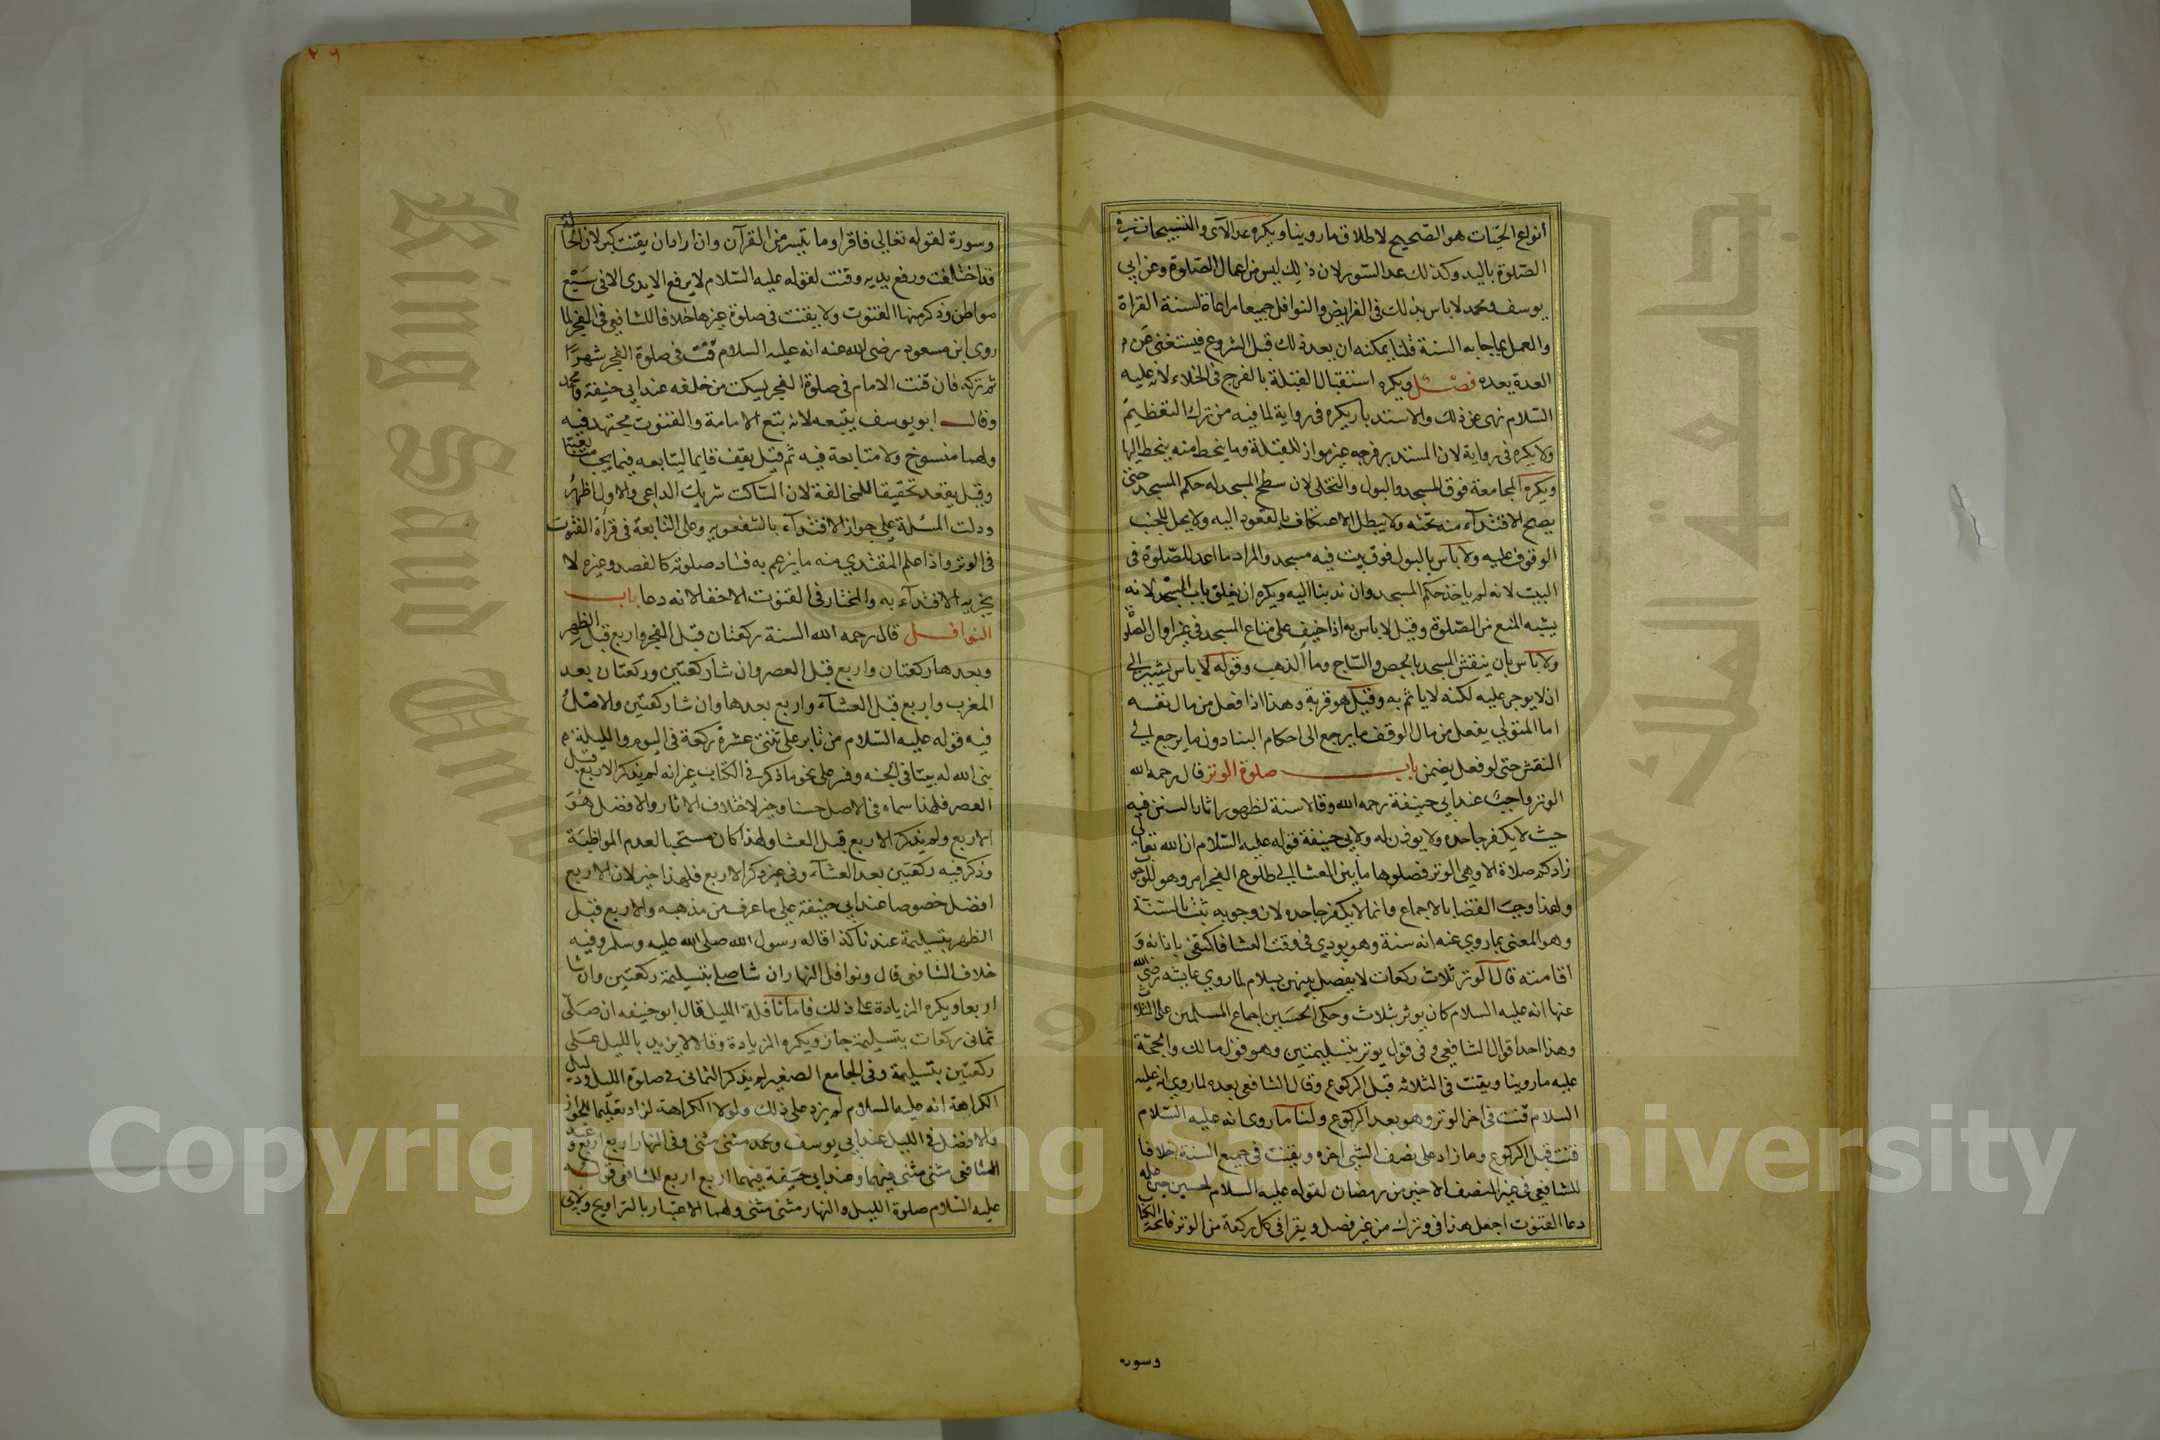 انواع الحيات هو الصحيح لاطلاق ما روينا ويكره عد الآى والتسبيحات في
الصلوة باليد وكذلك عد السور لان ذلك ليس من اعمال الصلوة وعن ابي
يوسف ومحمد لا باس بذلك في الفرايض والنوافل جميعا مراعاة لسنة القراة
والعمل بما جا به السنة قلنا يمكنه ان يعد ذلك قبل الشروع فيستغنى عن
العد بعده فصل ويكره استقبال القبلة بالفرج في الخلاء لانه عليه
السلام نهى عن ذلك والاستدبار يكره في رواية لما فيه من ترك التعظيم
ولا يكره في رواية لان المستدبر فرجه غير مواز للقبلة وما ينحط منه ينحط اليها
ويكره المجامعة فوق المسجد والبول والتخلى لان سطح المسجد له حكم المسجد حتى
يصح الاقتدآء منه بمن تحته ولا يبطل الاعتكاف بالصعود اليه ولا يحل للجنب
الوقوف عليه ولا باس بالبول فوق بيت فيه مسجد والمراد ما اعد للصلوة في
البيت لانه لم ياخذ حكم المسجد وان ندبنا اليه ويكره ان يغلق باب المسجد لانه
يشبه المنع من الصلوة وقيل لا باس به اذا خيف على متاع المسجد في غير اوان الصلوة
ولا باس بان ينقش المسجد بالجص والساج وما الذهب وقوله لا باس يشير الى
ان لا يوجر عليه لكنه لا ياثم به وقيل هو قربة وهذا اذا فعل من مال نفسه
اما المتولي يفعل من مال الوقف ما يرجع الى احكام البنا دون ما يرجع الى
النقش حتى لو فعل يضمن باب صلوة الوتر قال رحمه الله
الوتر واجب عند ابي حنيفة رحمه الله وقالا سنة لظهور اثار السنن فيه
حيث لا يكفر جاحده ولا يوذن له ولابي حنيفة قوله عليه السلام ان الله تعالى
زادكم صلاة الا وهي الوتر فصلوها ما بين العشا الى طلوع الفجر امر وهو للوجوب
ولهذا وجب القضا بالاجماع وانما لا يكفر جاحده لان وجوبه ثبت بالسنة
وهو المعنى بما روي عنه انه سنة وهو يودي في وقت العشا فاكتفى باذانه و
اقامته قال الوتر ثلاث ركعات لا يفصل بينهن بسلام لما روي عايشه رضى الله
عنها انه عليه السلام كان يوتر بثلاث وحكى الحسن اجماع المسلمين على الثلاث
وهذا احد اقوال الشافعي وفي قول يوتر بتسليمتين وهو قول مالك والحجة
عليه ما روينا ويقنت في الثالثه قبل الركوع وقال الشافعي بعده لما روي انه عليه
السلام قنت في اخر الوتر وهو بعد الركوع ولنا ما روى انه عليه السلام
قنت قبل الركوع وما زاد على نصف الشي اخره ويقنت في جميع السنة خلافا
للشافعي في غير النصف الاخير من رمضان لقوله عليه السلام لحسين حين علمه
دعا القنوت اجعل هذا في وترك من غير فصل ويقرا في كل ركعة من الوتر فاتحة الكتاب
وسورة
٢٩
وسورة لقوله تعالى فاقراوا ما تيسر من القرآن وان اراد ان يقنت كبر لان الحالة
قد اختلفت ورفع يديه وقنت لقوله عليه السلام لا يرفع الايدى الا في سبع
مواطن وذكر منها القنوت ولا يقنت في صلوة غيرها خلافا للشافعي في الفجر لما
روى ابن مسعود رضى الله عنه انه عليه السلام قنت في صلوة الفجر شهرا
ثم تركه فان قنت الامام في صلوة الفجر يسكت من خلفه عند ابي حنيفة ومحمد
وقال ابو يوسف يتبعه لانه تبع الامامة والقنوت مجتهد فيه
ولهما منسوخ ولا متابعة فيه ثم قيل يقف قايما ليتابعه فيما يجب متابعته
وقيل يقعد تحقيقا للمخالفة لان الساكت شريك الداعي والاول اظهر
ودلت المسئلة على جواز الاقتدآء بالشفعويه وعلى المتابعة في قراة القنوت
في الوتر واذا علم المقتدي منه ما يزعم به فساد صلوته كالفصد وغيره لا
يجزيه الاقتدآء به والمختار في القنوت الاخفا لانه دعا باب
النوافل قال رحمه الله السنة ركعتان قبل الفجر واربع قبل الظهر
وبعدها ركعتان واربع قبل العصر وان شا ركعتين وركعتان بعد
المغرب واربع قبل العشآء واربع بعدها وان شا ركعتين والاصل
فيه قوله عليه السلام من ثابر على ثنتى عشرة ركعة في اليوم والليلة
بنى الله له بيتا في الجنه وفسر على نحو ما ذكر في الكتاب غير انه لم يذكر الاربع قبل
العصر فلهذا سماه في الاصل حسنا وخير لاختلاف الاثار والافضل هو
الاربع ولم يذكر الاربع قبل العشا ولهذا كان مستحبا لعدم المواظبة
وذكر فيه ركعتين بعد العشآء وفي غيره ذكر الاربع فلهذا خير لان الاربع
افضل خصوصا عند ابي حنيفة على ما عرف من مذهبه والاربع قبل
الظهر بتسليمة عندنا كذا قاله رسول الله صلى الله عليه وسلم وفيه
خلاف الشافعي قال ونوافل النهار ان شا صلى بتسليمة ركعتين وان شا
اربعا ويكره الزيادة على ذلك فاما نافلة الليل قال ابو حنيفه ان صلى
ثماني ركعات بتسليمة جاز ويكره الزيادة وقالا لا يزيد بالليل على
ركعتين بتسليمة وفي الجامع الصغير لم يذكر الثماني في صلوة الليل ودليل
الكراهة انه عليه السلام لم يزد على ذلك ولولا الكراهة لزاد تعليما للجواز
والافضل في الليل عند ابي يوسف ومحمد مثنى مثنى وفي النهار اربع اربع وعند
الشافعي مثنى مثنى فيهما وعند ابي حنيفة فيهما اربع اربع للشافعي قوله
عليه السلام صلوة الليل والنهار مثنى مثنى ولهما الاعتبار بالتراويح ولابي
King Saud University
جامعة الملك سعود
1957
Copyright © King Saud University